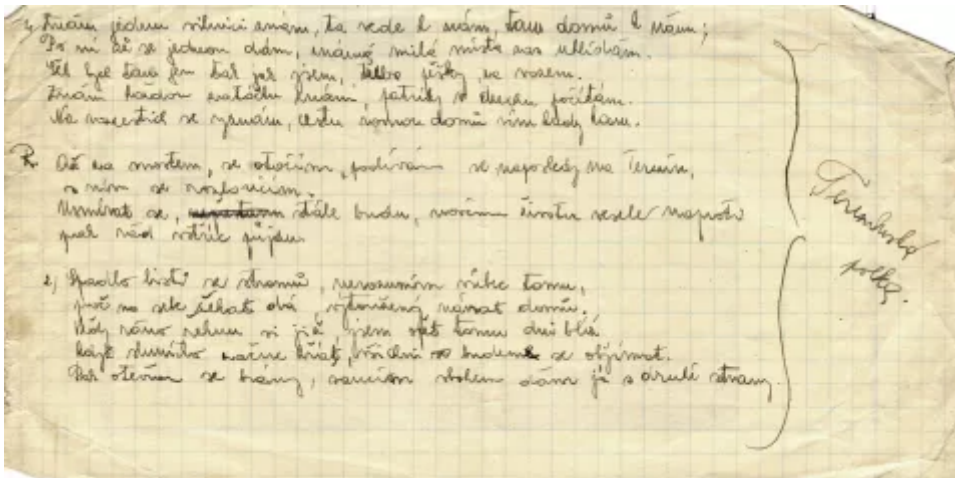 1, Znám jednu silnici znám, ta vede k nám, tam domů k nám;
Po ní až se jednou dám, známá milá místa zas uhlídám.
šel tam jen tak jak jsem, pěšky, za vozem.
Znám každou zatáčku znám, patníky v duchu počítám.
Na rozcestích se vyznám, cestu rovnou domů vím kady tam.
R. Až za mostem, se otočím, podívám se naposledy na Terezín,
s ním se rozloučím.
Usmívat se, stále budu, novému životu vesele naproti
pak rád vstříc půjdu.
2, Spadlo listí se stromů, nerozumím vůbec tomu,
proč na sebe čekat dá, vytoužený návrat domů.
Kdy ráno řeknu si již jsem zas tomu dni blíž.
když sluníčko začne hřát, všichni budeme se objímat.
Pak otevřem se brány, sbohem dáme já s druhé strany.
Terezínská
polka.